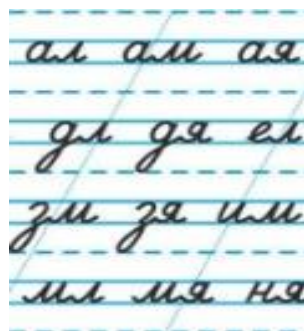 ал ам ая
дл дя ел
зм зя им
мл мя ня